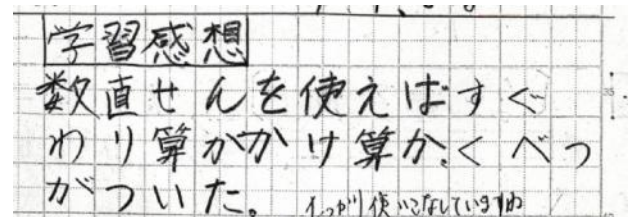 学習感想
数直せんを使えばすぐ
わり算かかけ算か、くべつ
がついた。 使いこなしていますね